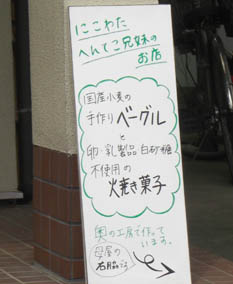 にこわた
へんてこ兄妹の
お店
国産小麦の
手作りベーグル
と
卵・乳製品・白砂糖
不使用の
焼き菓子
奥の工房で作って
います。
母屋の
右脇